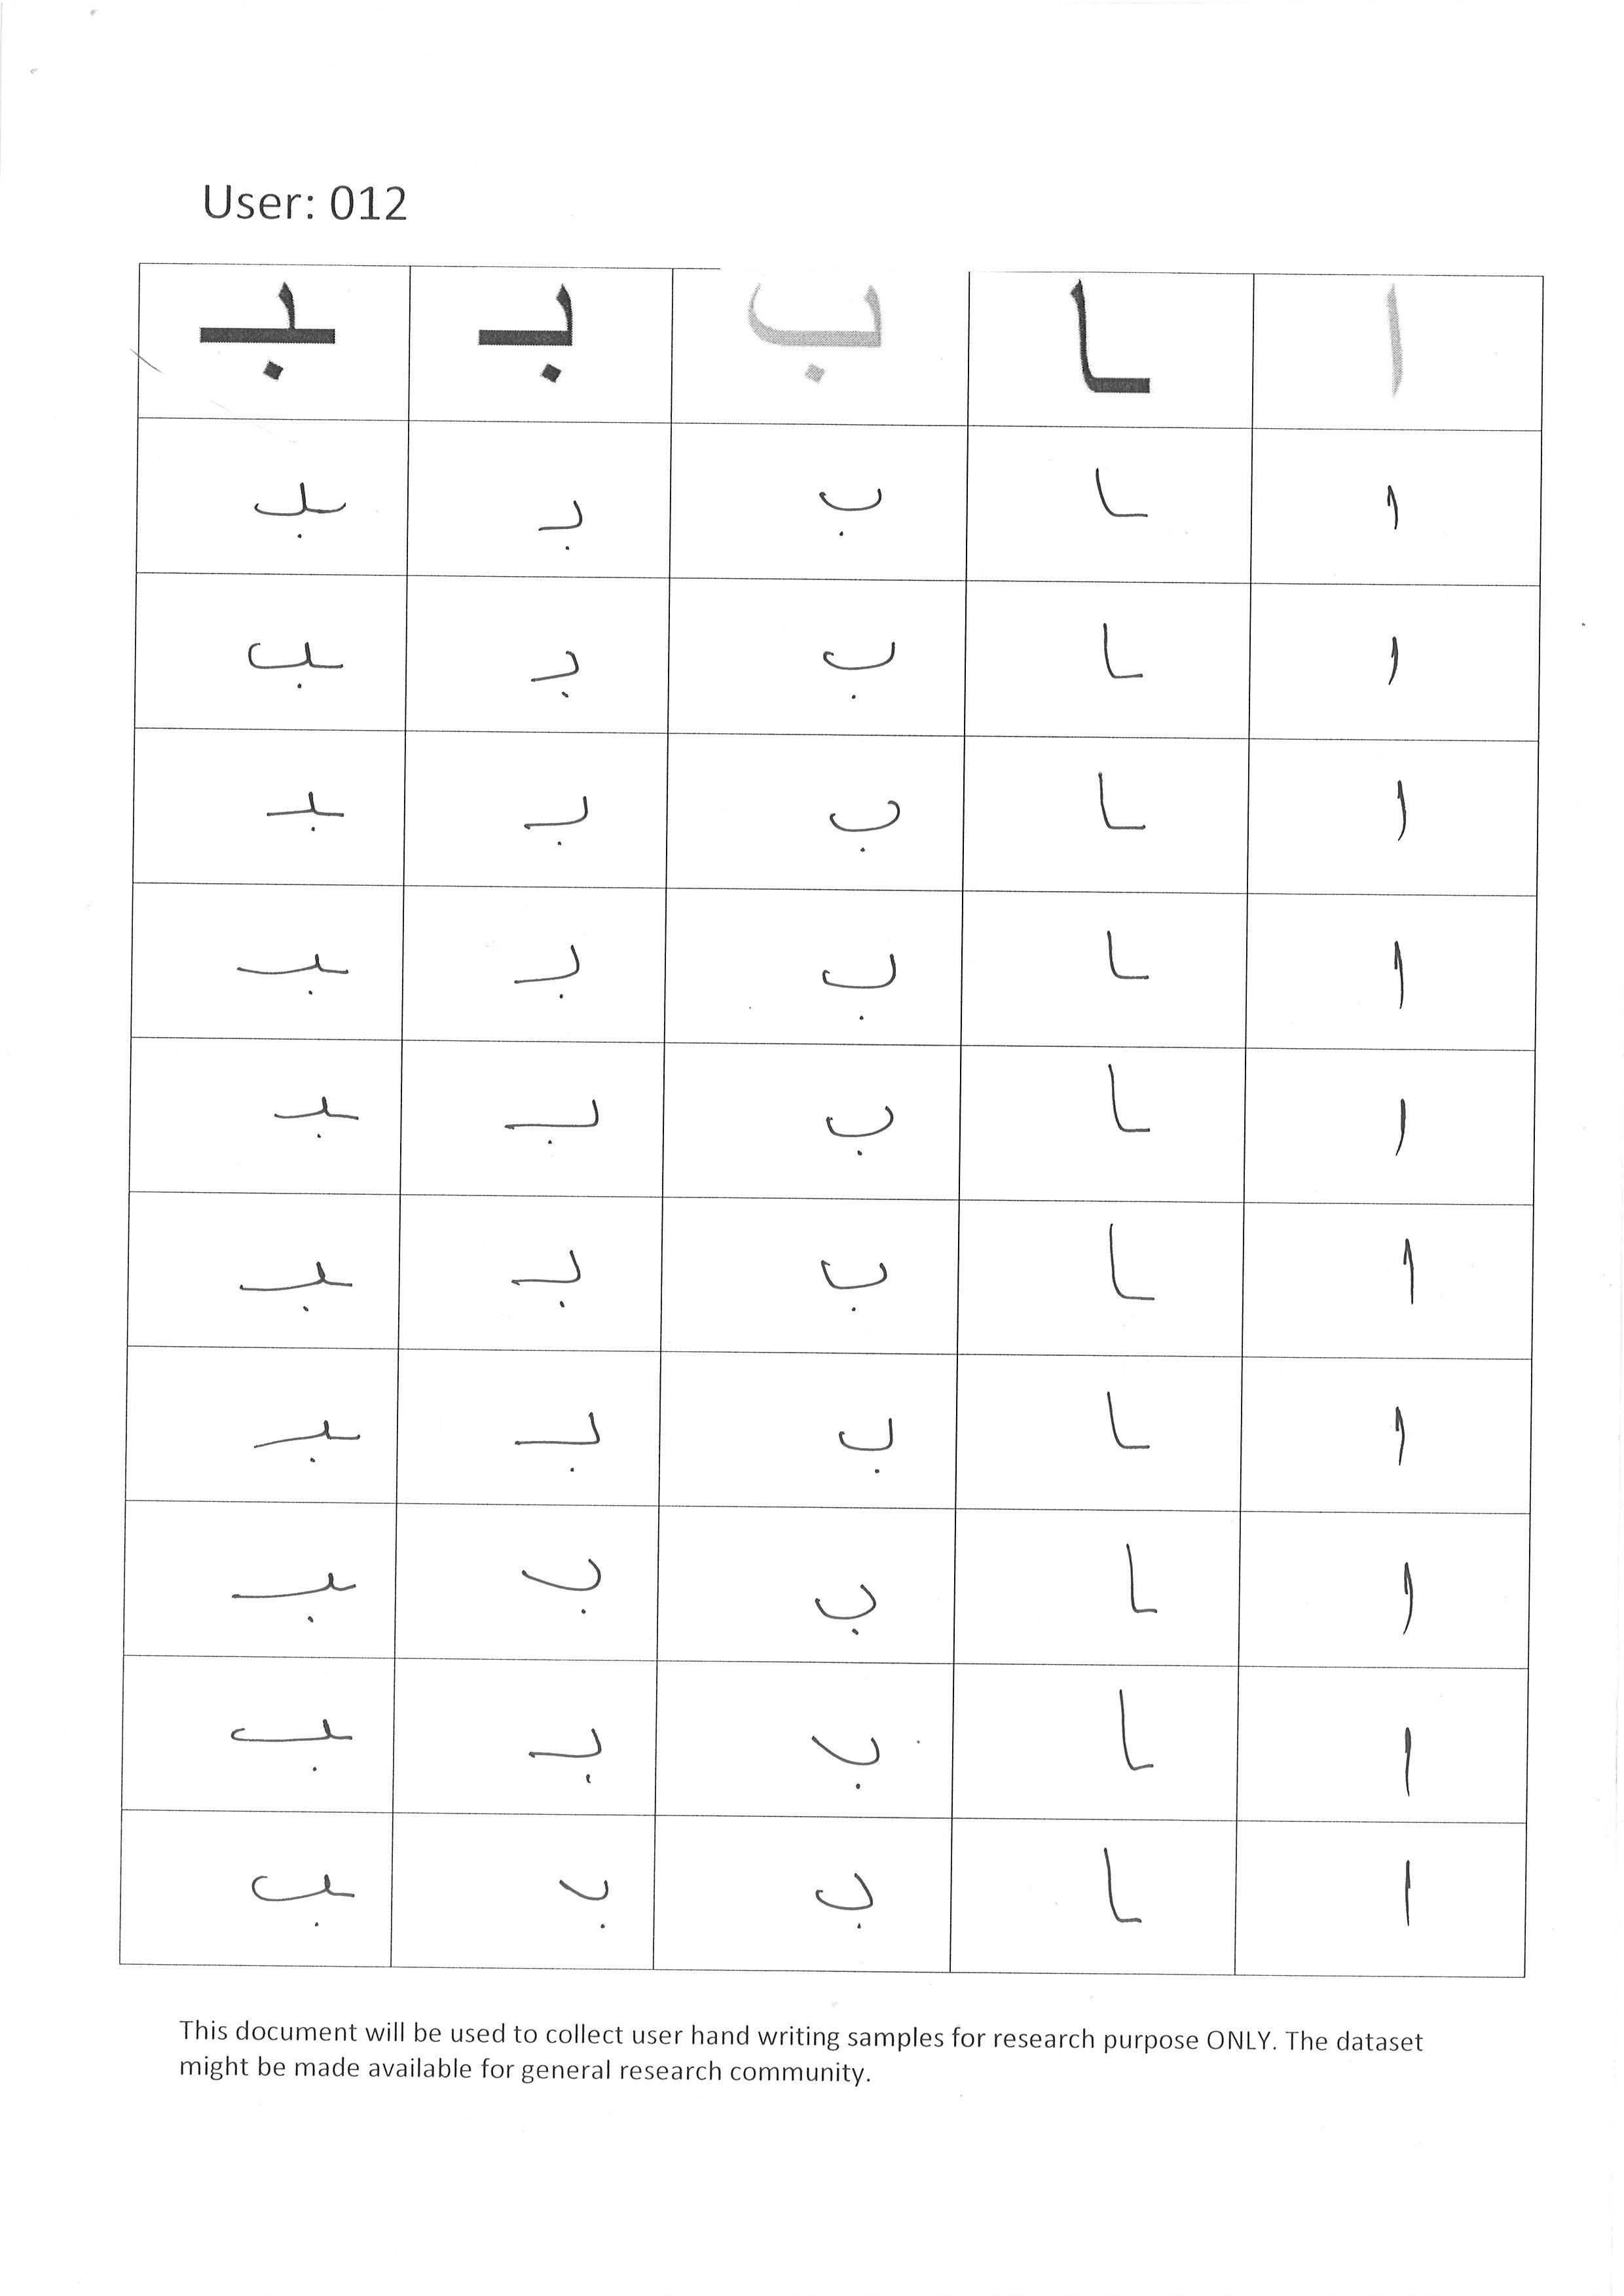 User: 012
ا ـا ب بـ ـبـ
ا ـا ب بـ ـبـ
ا ـا ب بـ ـبـ
ا ـا ب بـ ـبـ
ا ـا ب بـ ـبـ
ا ـا ب بـ ـبـ
ا ـا ب بـ ـبـ
ا ـا ب بـ ـبـ
ا ـا ب بـ ـبـ
ا ـا ب بـ ـبـ
ا ـا ب بـ ـبـ
This document will be used to collect user hand writing samples for research purpose ONLY. The dataset
might be made available for general research community.